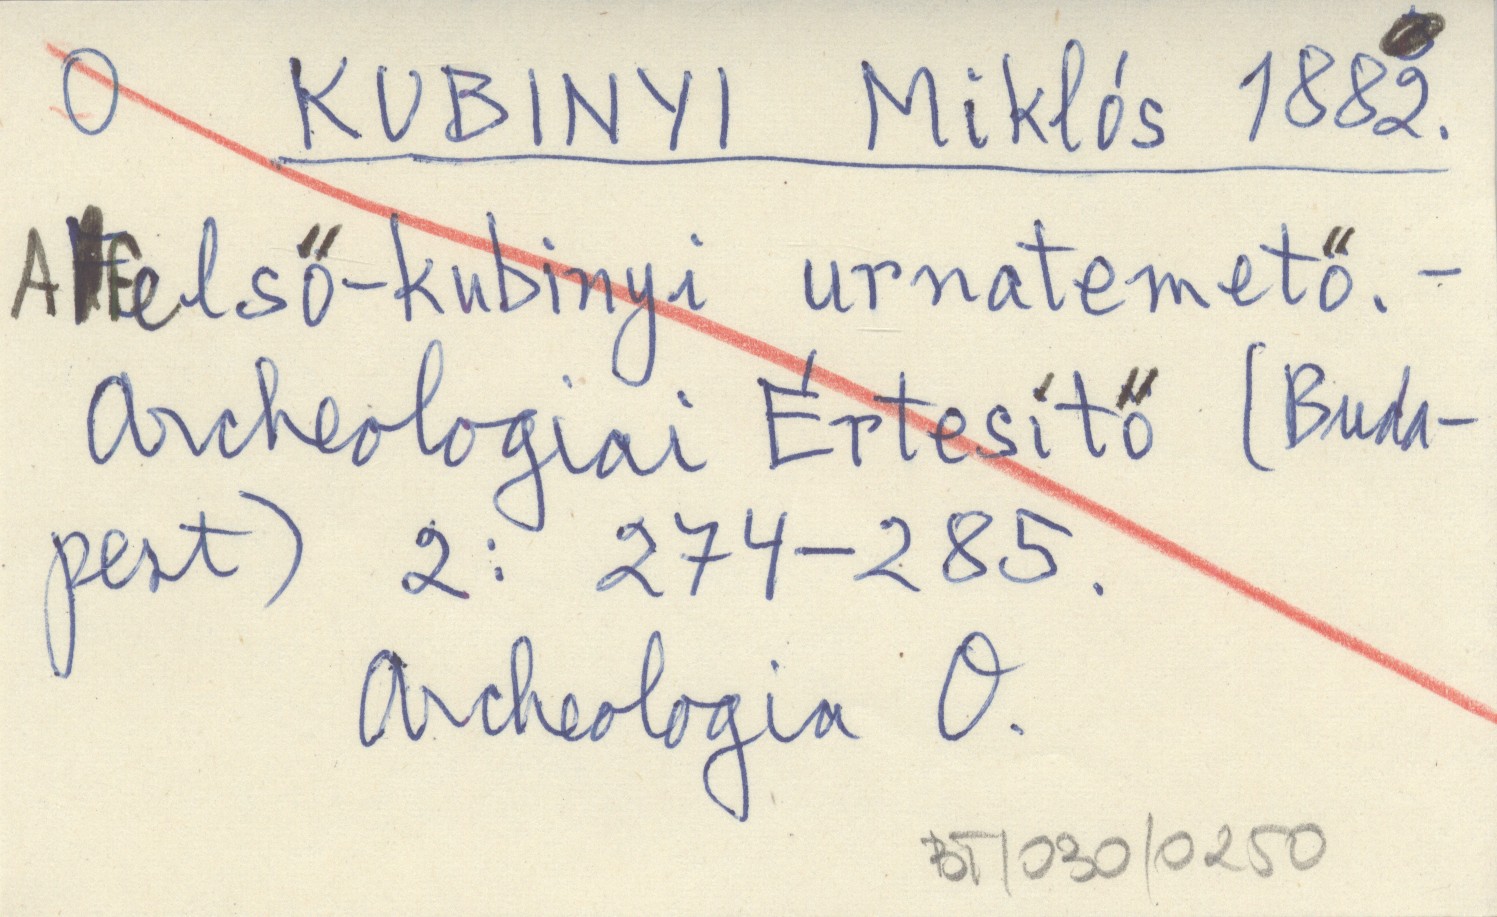 O KUBINYI Miklós 1882.
A felső-kubinyi urnatemető. -
Archeologiai Értesítő (Buda-
pest) 2: 274-285.
Archeologia O.
BT/030/0250